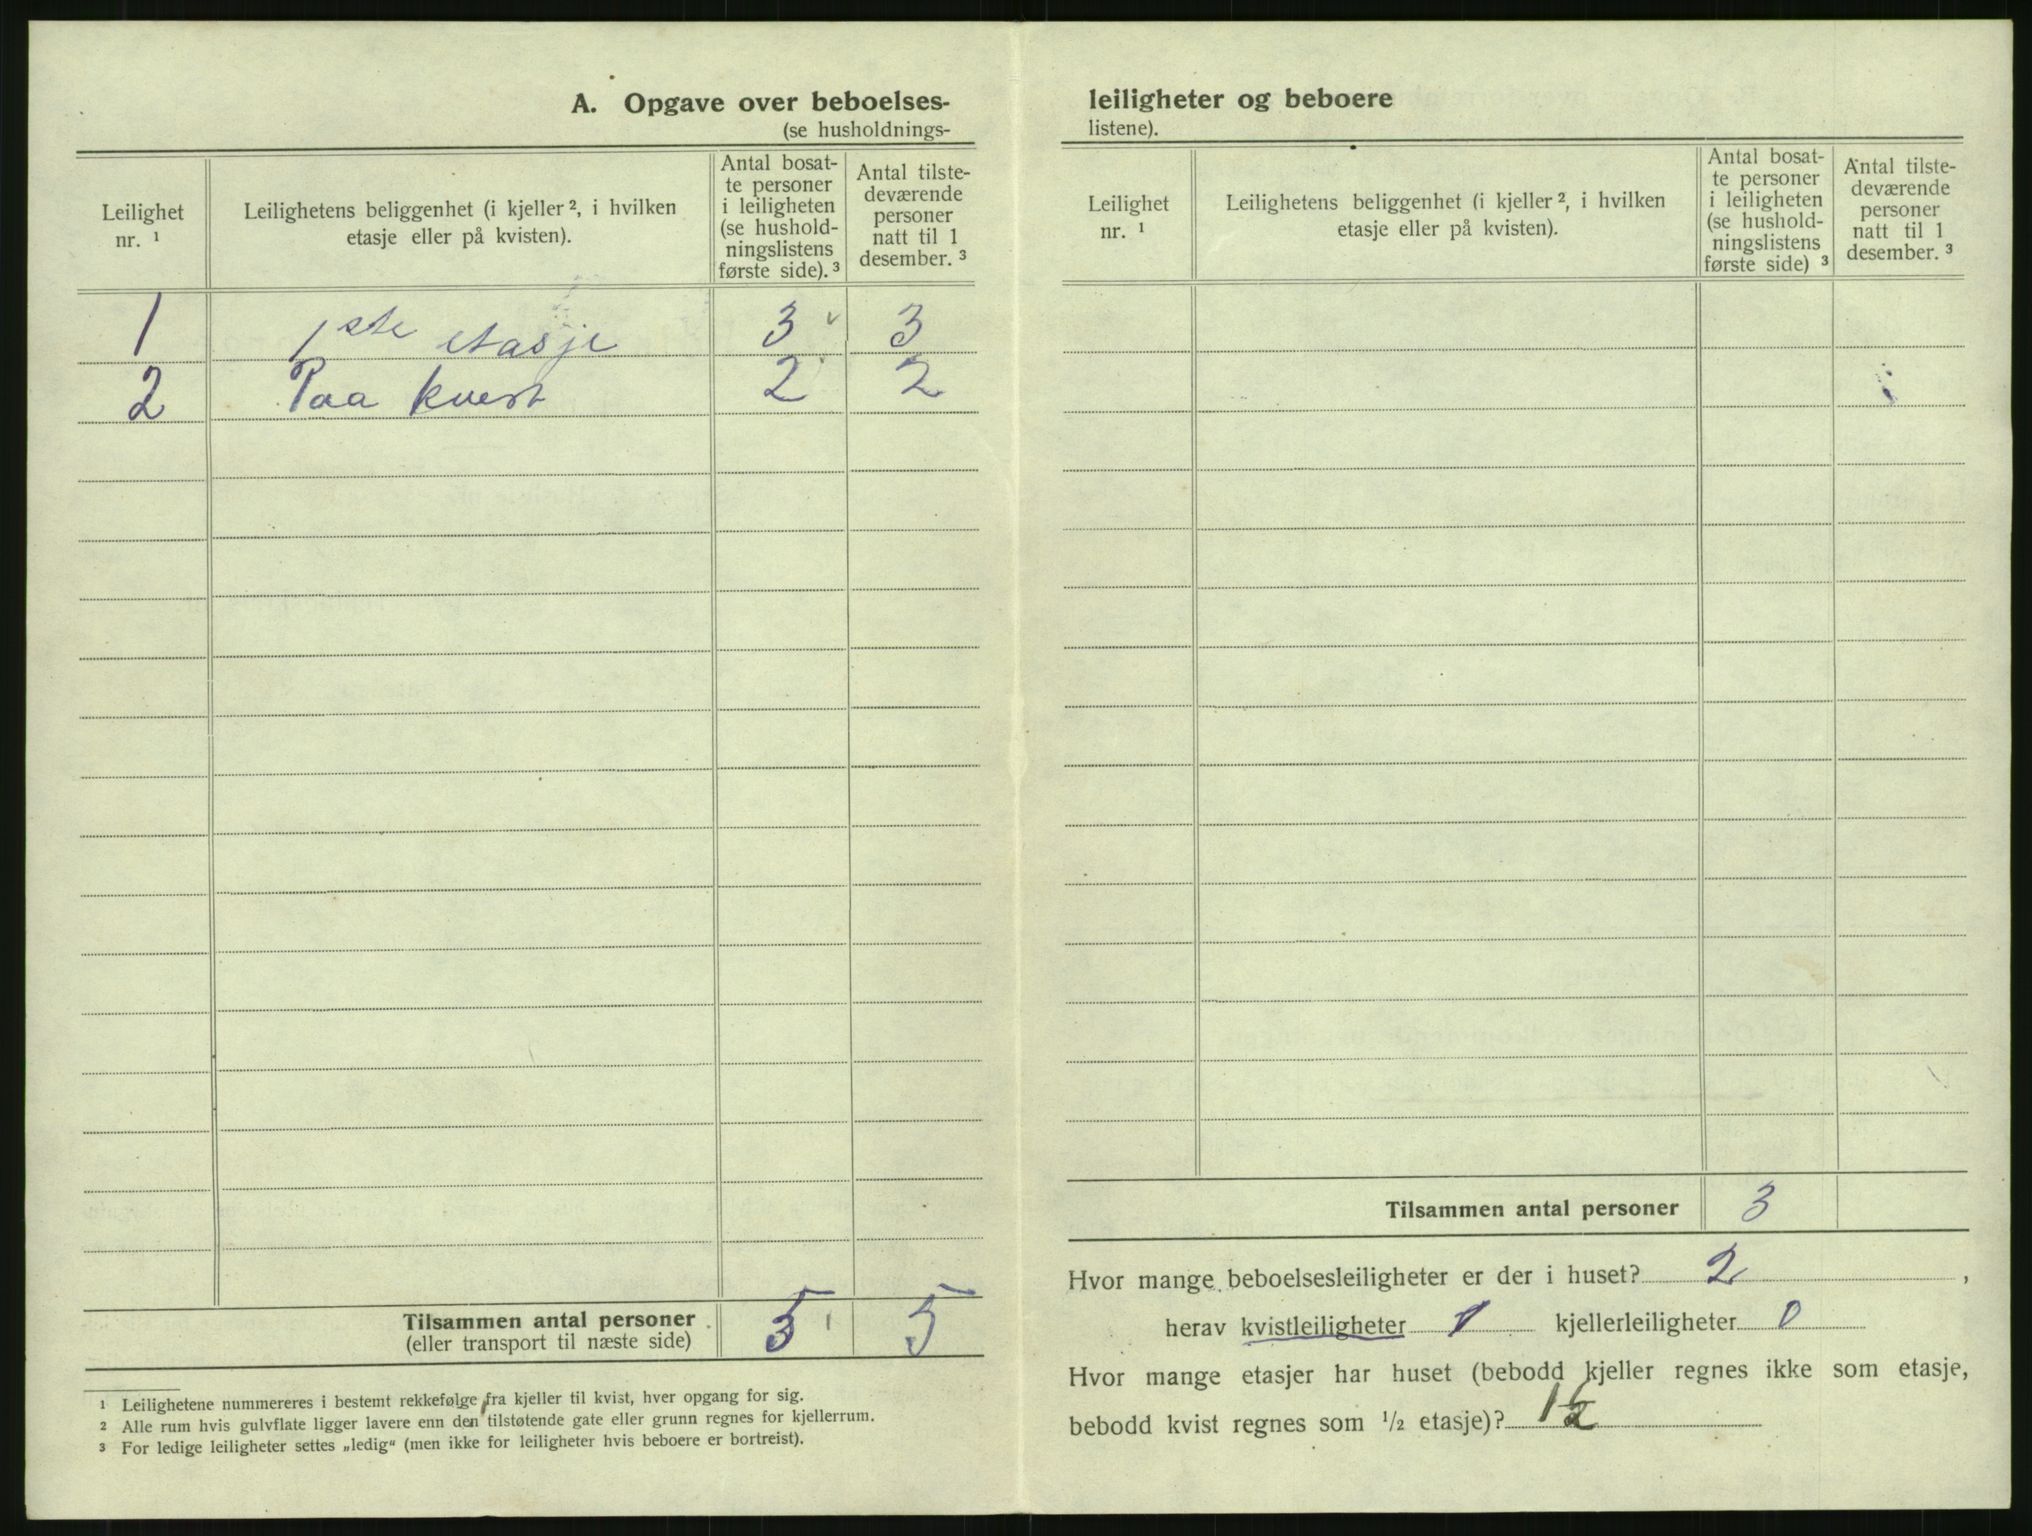 A. Opgave over beboelses-
(se husholdnings-
Leilighet nr. ¹
Leilighetens beliggenhet (i kjeller ², i hvilken etasje eller på kvisten).
Antal bosat-
te personer
i leiligheten
(se hushold-
ningslistens
første side). ³
Antal tilste-
deværende
personer
natt til 1
desember. ³
1 1ste etasje 3 3
2 Paa kvist 2 2
Tilsammen antal personer 5 5
(eller transport til næste side)
¹ Leilighetene nummereres i bestemt rekkefølge fra kjeller til kvist, hver opgang for sig.
² Alle rum hvis gulvflate ligger lavere enn den tilstøtende gate eller grunn regnes for kjellerrum.
³ For ledige leiligheter settes „ledig“ (men ikke for leiligheter hvis beboere er bortreist).
leiligheter og beboere
listene).
Leilighet nr. ¹
Leilighetens beliggenhet (i kjeller ², i hvilken etasje eller på kvisten).
Antal bosat-
te personer
i leiligheten
(se hushold-
ningslistens
første side) ³
Antal tilste-
deværende
personer
natt til 1
desember. ³
Tilsammen antal personer 3
Hvor mange beboelsesleiligheter er der i huset? 2 ,
herav kvistleiligheter 1 kjellerleiligheter 0
Hvor mange etasjer har huset (bebodd kjeller regnes ikke som etasje,
bebodd kvist regnes som ½ etasje)? 1½